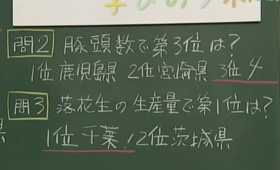 問2 豚頭数で第3位は?
1位鹿児島県 2位宮崎県 3位4
問3 落花生の生産量で第1位は?
1位千葉! 2位茨城県